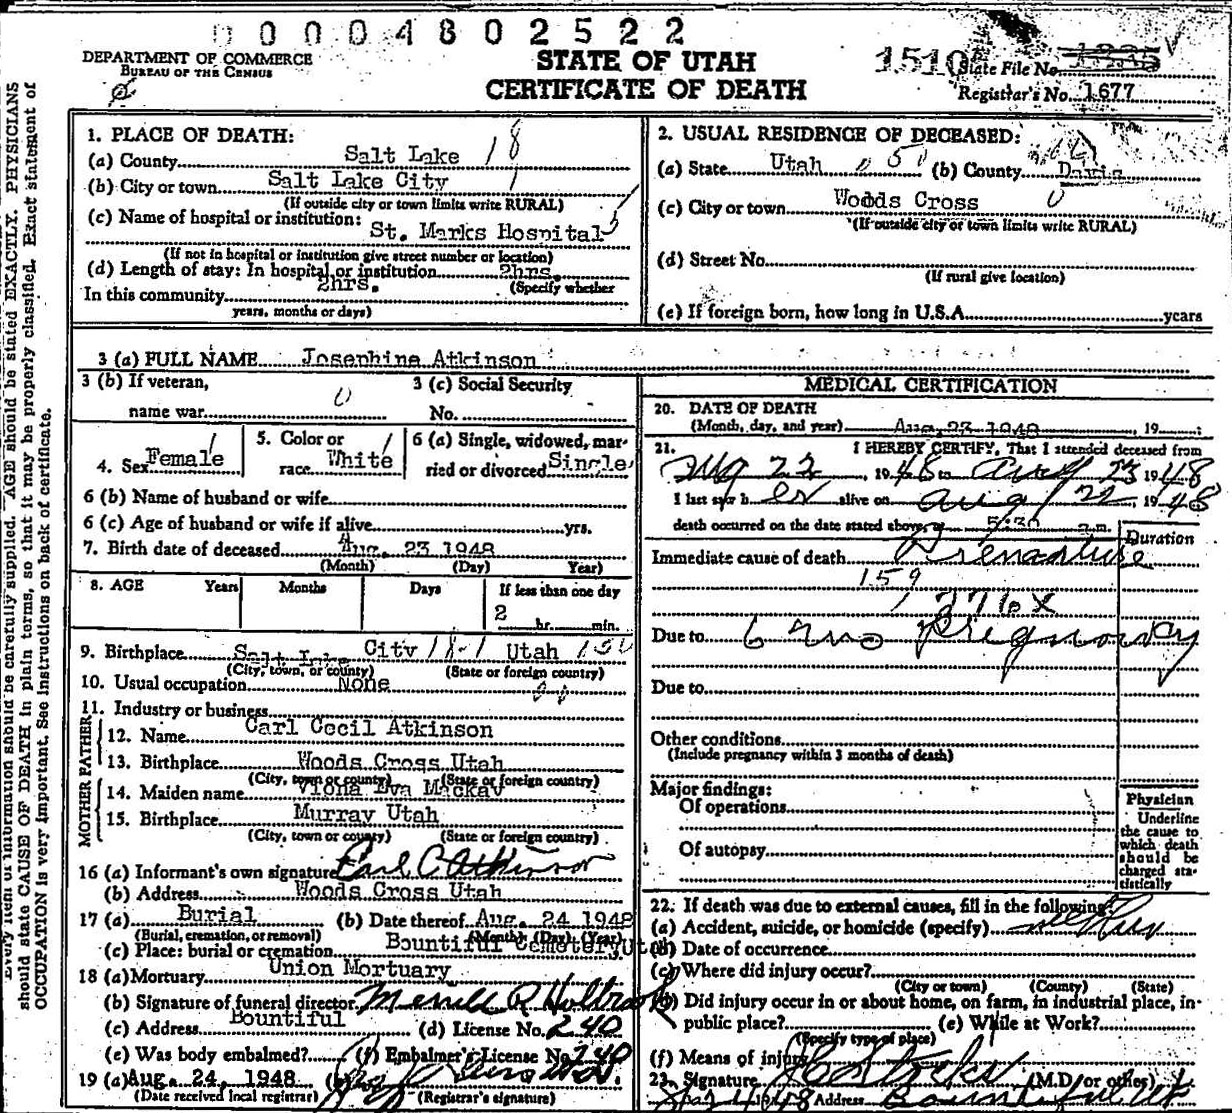 00004802522
DEPARTMENT OF COMMERCE
BUREAU OF THE CENSUS
STATE OF UTAH
CERTIFICATE OF DEATH
1510
State File No.
Registrar's No. 1677
Every item of information should be carefully supplied. AGE should be stated EXACTLY. PHYSICIANS
should state CAUSE OF DEATH in plain terms, so that it may be properly classified. Exact statement of
OCCUPATION is very important. See instructions on back of certificate.
1. PLACE OF DEATH:
(a) County Salt Lake 18
(b) City or town Salt Lake City 1
(If outside city or town limits write RURAL)
(c) Name of hospital or institution:
St. Marks Hospital 5
(If not in hospital or institution give street number or location)
(d) Length of stay: In hospital or institution 2hrs.
(Specify whether
In this community 2hrs.
years, months or days)
2. USUAL RESIDENCE OF DECEASED:
(a) State Utah (b) County Davis
(c) City or town Woods Cross 0
(If outside city or town limits write RURAL)
(d) Street No.
(If rural give location)
(e) If foreign born, how long in U.S.A. years
3 (a) FULL NAME Josephine Atkinson
3 (b) If veteran,
name war 0
3 (c) Social Security
No.
4. Sex Female 1
5. Color or
race White 1
6 (a) Single, widowed, mar-
ried or divorced Single
6 (b) Name of husband or wife
6 (c) Age of husband or wife if alive yrs.
7. Birth date of deceased Aug. 23 1948
(Month) (Day) Year)
8. AGE Years Months Days If less than one day
2 hr. min.
9. Birthplace Salt Lake City 18-1 Utah
(City, town, or county) (State or foreign country)
10. Usual occupation None
11. Industry or business
FATHER
12. Name Carl Cecil Atkinson
13. Birthplace Woods Cross Utah
(City, town or county) (State or foreign country)
MOTHER
14. Maiden name Viona Eva Mackay
15. Birthplace Murray Utah
(City, town or county) (State or foreign country)
16 (a) Informant's own signature Carl C Atkinson
(b) Address Woods Cross Utah
17 (a) Burial (b) Date thereof Aug. 24 1948
(Burial, cremation, or removal) (Month) (Day) (Year)
(c) Place: burial or cremation Bountiful Cemetery Utah
18 (a) Mortuary Union Mortuary
(b) Signature of funeral director Merrill R Holbrook
(c) Address Bountiful (d) License No. 240
(e) Was body embalmed? (f) Embalmer's License No. 240
19 (a) Aug. 24, 1948 (b)
(Date received local registrar) (Registrar's signature)
MEDICAL CERTIFICATION
20. DATE OF DEATH
(Month, day, and year) Aug. 23 1948, 19
21. I HEREBY CERTIFY, That I attended deceased from
Aug 22, 1948 to Aug 23 1948
I last saw h er alive on Aug 22, 1948
death occurred on the date stated above, at 5:30 m.
Duration
Immediate cause of death Premature
159
276x
Due to 6 mo Pregnancy
Due to
Other conditions
(Include pregnancy within 3 months of death)
Major findings:
Of operations
Of autopsy
Physician
Underline
the cause to
which death
should be
charged sta-
tistically
22. If death was due to external causes, fill in the following:
(a) Accident, suicide, or homicide (specify)
(b) Date of occurrence
(c) Where did injury occur?
(City or town) (County) (State)
(d) Did injury occur in or about home, on farm, in industrial place, in
public place? (e) While at Work?
(Specify type of place)
(f) Means of injury
23. Signature (M.D. or other)
Address Bountiful Ut